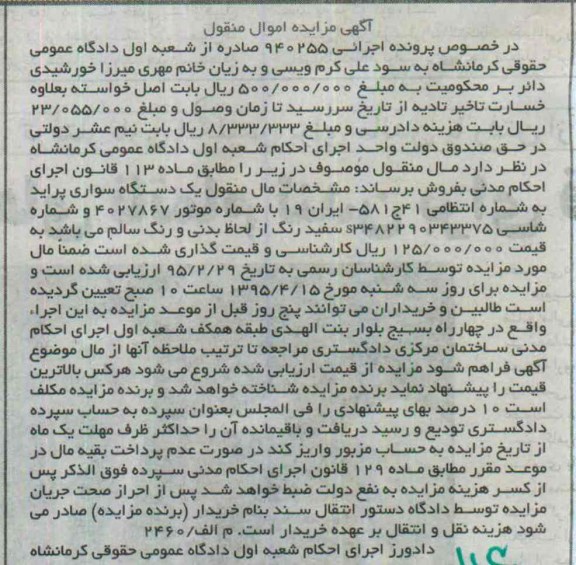 آگهی مزایده اموال منقول
در خصوص پرونده اجرائی ۹۴۰۲۵۵ صادره از شعبه اول دادگاه عمومی
حقوقی کرمانشاه به سود علی کرم ویسی و به زیان خانم مهری میرزا خورشیدی
دائر بر محکومیت به مبلغ ۵۰۰/۰۰۰/۰۰۰ ریال بابت اصل خواسته بعلاوه
خسارت تاخیر تادیه از تاریخ سررسید تا زمان وصول و مبلغ ۲۳/۰۵۵/۰۰۰
ریال بابت هزینه دادرسی و مبلغ ۸/۳۳۳/۳۳۳ ریال بابت نیم عشر دولتی
در حق صندوق دولت واحد اجرای احکام شعبه اول دادگاه عمومی کرمانشاه
در نظر دارد مال منقول موصوف در زیر را مطابق ماده ۱۱۳ قانون اجرای
احکام مدنی بفروش برساند: مشخصات مال منقول یک دستگاه سواری پراید
به شماره انتظامی ۴۱ج۵۸۱- ایران ۱۹ با شماره موتور ۴۰۲۷۸۶۷ و شماره
شاسی s۳۴۸۲۲۹۰۳۴۳۳۷۵ سفید رنگ از لحاظ بدنی و رنگ سالم می باشد به
قیمت ۱۲۵/۰۰۰/۰۰۰ ریال کارشناسی و قیمت گذاری شده است ضمناً مال
مورد مزایده توسط کارشناسان رسمی به تاریخ ۹۵/۲/۲۹ ارزیابی شده است و
مزایده برای روز سه شنبه مورخ ۱۳۹۵/۴/۱۵ ساعت ۱۰ صبح تعیین گردیده
است طالبین و خریداران می توانند پنج روز قبل از موعد مزایده به این اجراء
واقع در چهارراه بسیج بلوار بنت الهدی طبقه همکف شعبه اول اجرای احکام
مدنی ساختمان مرکزی دادگستری مراجعه تا ترتیب ملاحظه آنها از مال موضوع
آگهی فراهم شود مزایده از قیمت ارزیابی شده شروع می شود هرکس بالاترین
قیمت را پیشنهاد نماید برنده مزایده شناخته خواهد شد و برنده مزایده مکلف
است ۱۰ درصد بهای پیشنهادی را فی المجلس بعنوان سپرده به حساب سپرده
دادگستری تودیع و رسید دریافت و باقیمانده آن را حداکثر ظرف مهلت یک ماه
از تاریخ مزایده به حساب مزبور واریز کند در صورت عدم پرداخت بقیه مال در
موعد مقرر مطابق ماده ۱۲۹ قانون اجرای احکام مدنی سپرده فوق الذکر پس
از کسر هزینه مزایده به نفع دولت ضبط خواهد شد پس از احراز صحت جریان
مزایده توسط دادگاه دستور انتقال سند بنام خریدار (برنده مزایده) صادر می
شود هزینه نقل و انتقال بر عهده خریدار است. م الف/۲۴۶۰
دادورز اجرای احکام شعبه اول دادگاه عمومی حقوقی کرمانشاه